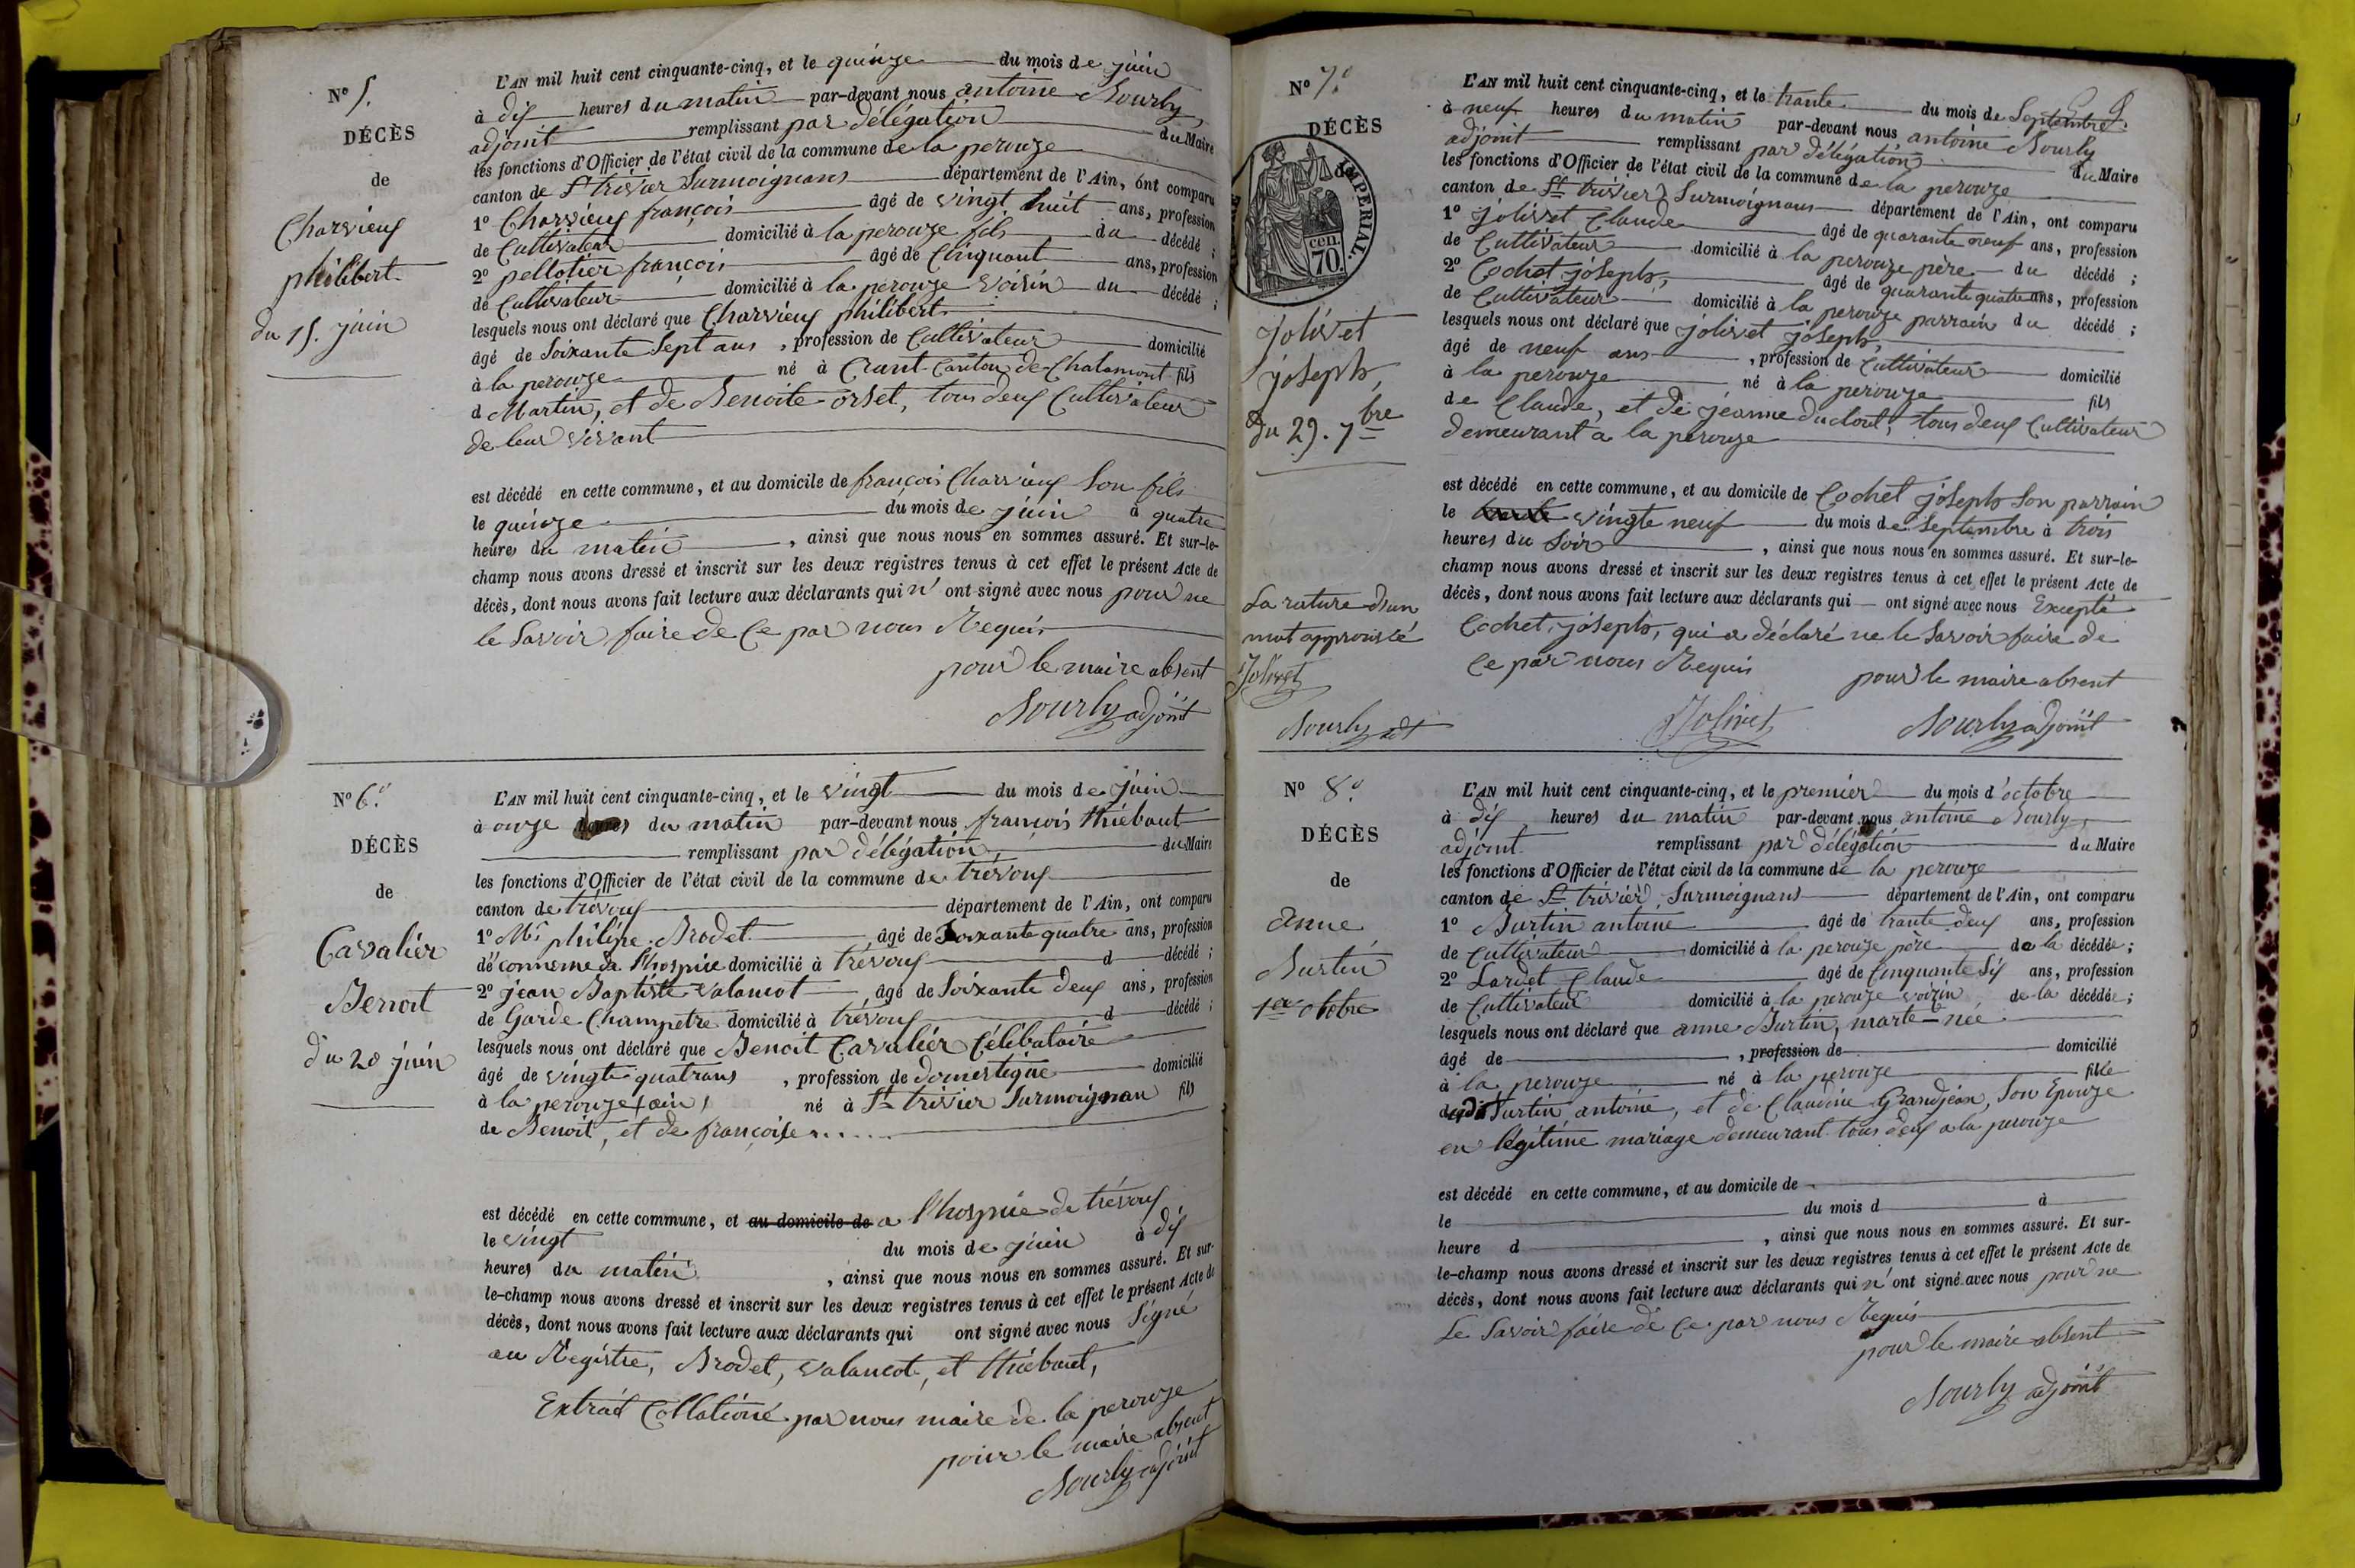 N° 5.
DÉCÈS
de
Charvieux
philibert
du 15. juin
L'AN mil huit cent cinquante-cinq, et le quinze du mois de juin
à dix heures du matin par-devant nous antoine Nourly,
adjoint remplissant par délégation du Maire
les fonctions d'Officier de l'état civil de la commune de la perouze
canton de St trivier Surmoignans département de l'Ain, ont comparu
1° Charvieux françois âgé de vingt huit ans, profession
de Cultivateur domicilié à la perouze fils du décédé ;
2° pellotier françois âgé de Cinquant ans, profession
de Cultivateur domicilié à la perouze voisin du décédé ;
lesquels nous ont déclaré que Charvieux philibert
âgé de Soixante Sept ans , profession de Cultivateur domicilié
à la perouze né à Crant Canton de Chalamont fils
d Martin, et de Benoite orset, tous deux Cultivateur
de leur vivant
est décédé en cette commune, et au domicile de françois Charvieux Son fils
le quinze du mois de juin à quatre
heures du matin , ainsi que nous nous en sommes assuré. Et sur-le-
champ nous avons dressé et inscrit sur les deux registres tenus à cet effet le présent Acte de
décès, dont nous avons fait lecture aux déclarants qui n' ont signé avec nous pour ne
le Savoir faire de Ce par nous Requis
pour le maire absent
Nourly adjoint
N° 6.°
DÉCÈS
de
Cavalier
Benoit
du 20 juin
L'AN mil huit cent cinquante-cinq, et le vingt du mois de juin
à onze heures du matin par-devant nous françois thiébaut
remplissant par délégation, du Maire
les fonctions d'Officier de l'état civil de la commune de trévoux
canton de trévoux département de l'Ain, ont comparu
1° Mr philipe Brodet âgé de Soixante quatre ans, profession
d'économe de l'hospice domicilié à trévoux d décédé ;
2° jean Baptiste valancot âgé de Soixante deux ans, profession
de Garde Champetre domicilié à trévoux d décédé ;
lesquels nous ont déclaré que Benoit Cavalier Célibataire
âgé de vingt quatrans , profession de domestique domicilié
à la perouze (ain) né à St trivier Surmoignan fils
de Benoit, et de françoise .....
est décédé en cette commune, et au domicile de a l'hospice de trévoux
le vingt du mois de juin à dix
heures du matin , ainsi que nous nous en sommes assuré. Et sur-
le-champ nous avons dressé et inscrit sur les deux registres tenus à cet effet le présent Acte de
décès, dont nous avons fait lecture aux déclarants qui ont signé avec nous Signé
au Registre, Brodet, valancot, et thiébaut,
Extrait Collationé par nous maire de la perouze
pour le maire absent
Nourly adjoint
N° 7.°
DÉCÈS
de
IMPERIAL.
cen.
70.
jolivet
joseph,
du 29. 7bre
La rature d'un
mot approuvé
Jolivet
Nourly adt
L'AN mil huit cent cinquante-cinq, et le trante du mois de Septembre
à neuf heures du matin par-devant nous antoine Nourly
adjoint remplissant par délégation du Maire
les fonctions d'Officier de l'état civil de la commune de la perouze
canton de St trivier Surmoignans département de l'Ain, ont comparu
1° jolivet Claude âgé de quarante neuf ans, profession
de Cultivateur domicilié à la perouze père du décédé ;
2° Cochet joseph, âgé de quarante quatre ans, profession
de Cultivateur domicilié à la perouze parrain du décédé ;
lesquels nous ont déclaré que jolivet joseph,
âgé de neuf ans , profession de Cultivateur domicilié
à la perouze né à la perouze fils
de Claude, et de jeanne duclout, tous deux Cultivateur
demeurant a la perouze
est décédé en cette commune, et au domicile de Cochet joseph Son parrain
le vingte neuf du mois de Septembre à trois
heures du Soir , ainsi que nous nous en sommes assuré. Et sur-le-
champ nous avons dressé et inscrit sur les deux registres tenus à cet effet le présent Acte de
décès, dont nous avons fait lecture aux déclarants qui ont signé avec nous Excepté
Cochet, joseph, qui a déclaré ne le Savoir faire de
Ce par nous Requis
pour le maire absent
Jolivet Nourly adjoint
N° 8.°
DÉCÈS
de
anne
Burtin
1er octobre
L'AN mil huit cent cinquante-cinq, et le premier du mois d'octobre
à dix heures du matin par-devant nous antoine Nourly,
adjoint remplissant par délégation du Maire
les fonctions d'Officier de l'état civil de la commune de la perouze
canton de St trivier, Surmoignans département de l'Ain, ont comparu
1° Burtin antoine âgé de trante deux ans, profession
de Cultivateur domicilié à la perouze père de la décédée ;
2° Lardet Claude âgé de Cinquante Six ans, profession
de Cultivateur domicilié à la perouze voizin, de la décédée ;
lesquels nous ont déclaré que anne Burtin, morte-née
âgé de , profession de domicilié
à la perouze né à la perouze fille
dudit Burtin antoine, et de Claudine Grandjean, Son Epouze
en légitime mariage demeurant tous deux a la perouze
est décédé en cette commune, et au domicile de
le du mois d à
heure d , ainsi que nous nous en sommes assuré. Et sur-
le-champ nous avons dressé et inscrit sur les deux registres tenus à cet effet le présent Acte de
décès, dont nous avons fait lecture aux déclarants qui n' ont signé avec nous pour ne
Le Savoir faire de Ce par nous Requis
pour le maire absent
Nourly adjoint